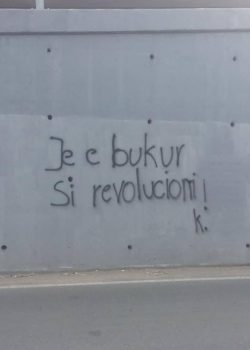 Je e bukur
Si revolucioni!
K.